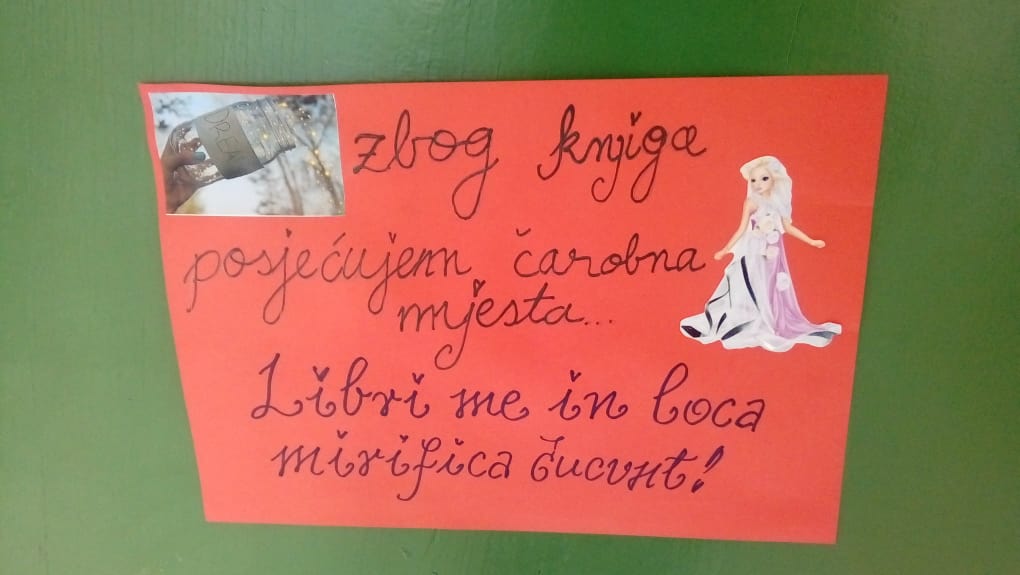 DREA
zbog knjiga
posjećujem čarobna
mjesta...
Libri me in loca
mirifica ducunt!